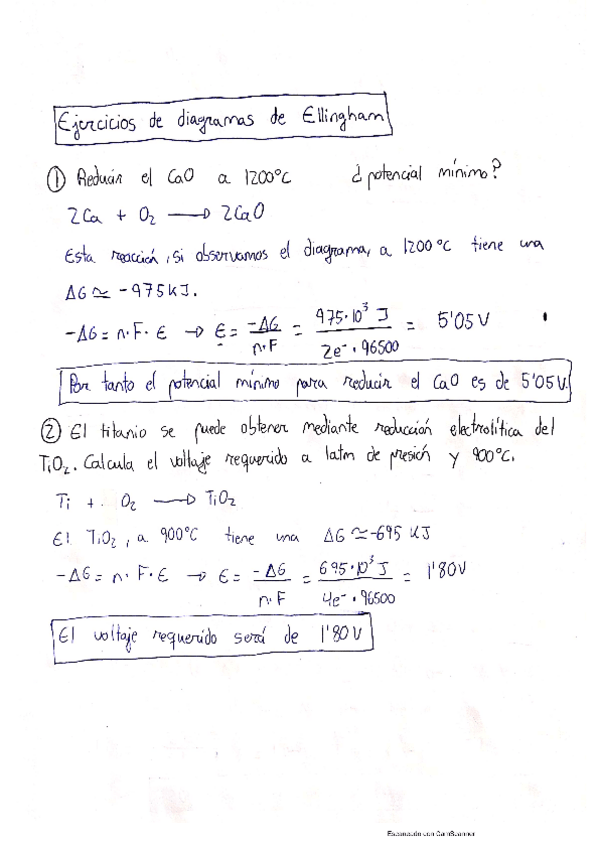 Ejercicios de diagramas de Ellingham
① Reducir el CaO a 1200°C ¿potencial mínimo?
2Ca + O₂ ⟶ 2CaO
Esta reacción, si observamos el diagrama, a 1200°C tiene una
ΔG ≃ -975KJ.
-ΔG = n·F·ε → ε = -ΔG/n·F = 975·10³ J/2e⁻·96500 = 5'05V
Por tanto el potencial mínimo para reducir el CaO es de 5'05V.
② El titanio se puede obtener mediante reducción electrolítica del
TiO₂. Calcula el voltaje requerido a 1atm de presión y 900°C.
Ti + O₂ ⟶ TiO₂
El TiO₂, a 900°C tiene una ΔG ≃ -695 KJ
-ΔG = n·F·ε → ε = -ΔG/n·F = 695·10³ J/4e⁻·96500 = 1'80V
El voltaje requerido será de 1'80V
Escaneado con CamScanner